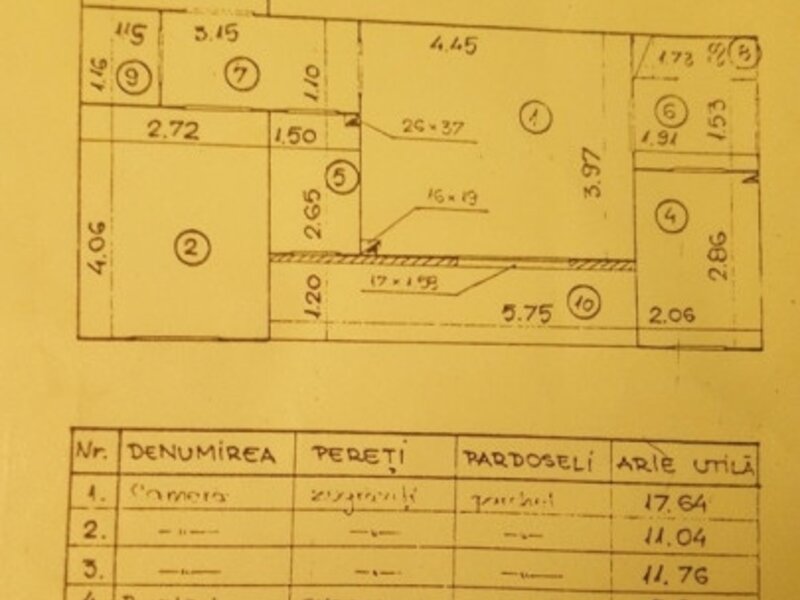 115 3.15 4.45 1.73 8
1.16 9 7 1.10 1 6 1.53
2.72 1.50 26×37 1.91
5 3.97
2.65 16×19 4
4.06 2 2.86
17×1.58
1.20 5.75 10 2.06
Nr. DENUMIREA PEREȚI PARDOSELI ARIE UTILĂ
1. Camera zugrăviți parchet 17.64
2. —„— —„— —„— 11.04
3. —„— —„— —„— 11.76